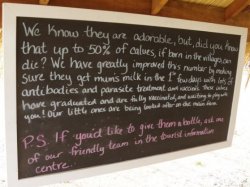 We know they are adorable, but, did you know
that up to 50% of calves, if born in the villages, can
die? We have greatly improved this number by making
sure they get mums milk in the 1st few days with lots of
antibodies and parasite treatment and vaccines. These calves
have graduated and are fully vaccinated, and waiting to play with
you! Our little ones are being looked after on the main farm.
P.S. If you'd like to give them a bottle, ask one
of our friendly team in the tourist information
centre.